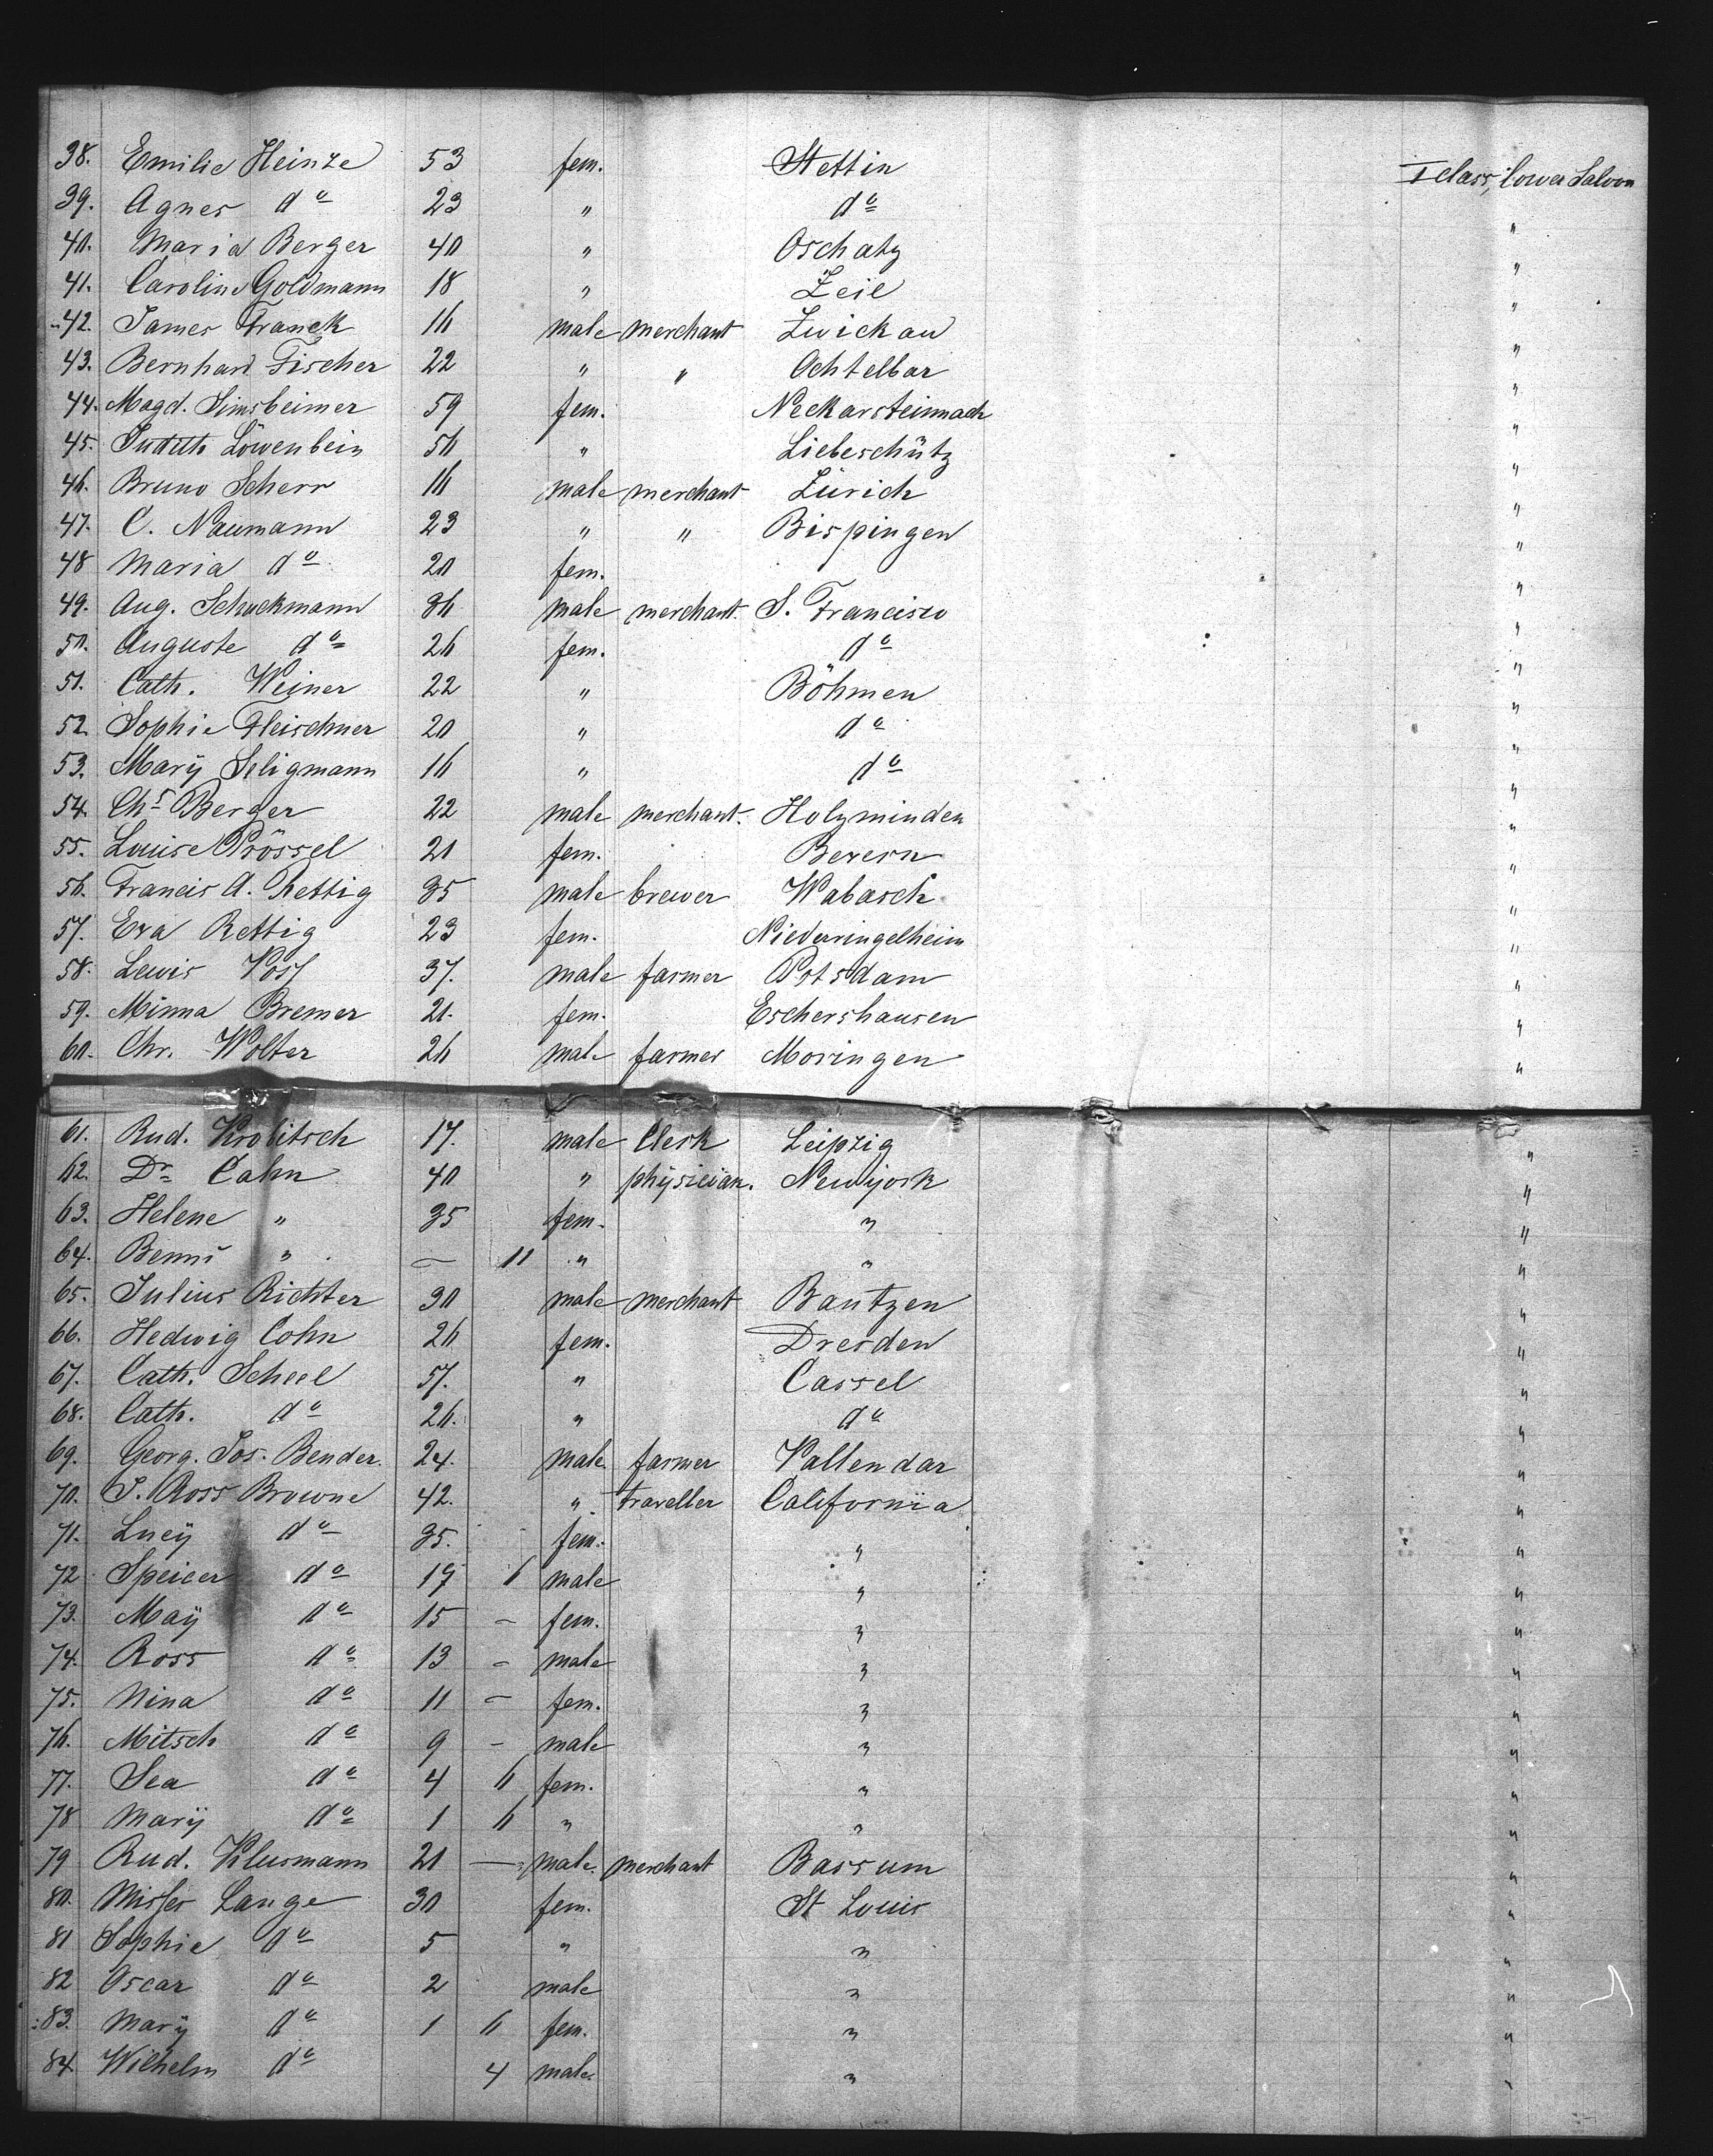 38. Emilie Heinze 53 fem. Stettin I class, lower Saloon
39. Agnes do 23 " do "
40. Maria Berger 40 " Oschatz "
41. Caroline Goldmann 18 " Zeil "
42. James Franck 16 male merchant Zwickau "
43. Bernhard Fischer 22 " " Achtelbar "
44. Magd. Simsheimer 59 fem. Neckarsteinnach "
45. Judith Löwenbein 56 " Liebeschütz "
46. Bruno Scherr 16 male merchant Zürich "
47. C. Naumann 23 " " Bispingen "
48 Maria do 20 fem. "
49. Aug. Schuckmann 36 male merchant. S. Francisco "
50. Auguste do 26 fem. do "
51. Cath. Weiner 22 " Böhmen "
52. Sophie Fleischner 20 " do "
53. Marÿ Seligmann 16 " do "
54. Chs Berger 22 male merchant. Holzminden "
55. Louise Prössel 21 fem. Bevern "
56. Francis A. Rettig 35 male brewer Wabasch "
57. Eva Rettig 23 fem. Niederingelheim "
58. Lewis Voss 37. male farmer Potsdam "
59. Minna Bremer 21. fem. Eschershausen "
60. Chr. Wolter 26 male farmer Moringen "
61. Rud. Krolitsch 17. male Clerk Leipzig "
62. Dr Cahn 40 " phÿsician. Newÿork "
63. Helene " 35 fem. " "
64. Benni " — 11 " " "
65. Julius Richter 30 male merchant Bautzen "
66. Hedwig Cohn 26 fem. Dresden "
67. Cath. Scheel 57. " Cassel "
68. Cath. do 26. " do "
69. Georg. Jos. Bender. 24. male farmer Vallendar "
70. J. Ross Browne 42. " traveller California "
71. Lucÿ do 35. fem. " "
72. Speicer do 17 6 male " "
73. Maÿ do 15 – fem. " "
74. Ross do 13 – male " "
75. Nina do 11 – fem. " "
76. Mitsch do 9 – male " "
77. Sea do 4 6 fem. " "
78 Marÿ do 1 6 " " "
79 Rud. Klusmann 21 — male. merchant Bassum "
80. Misses Lange 30 fem. St Louis "
81 Sophie do 5 " " "
82 Oscar do 2 male " "
83. Marÿ do 1 6 fem. " "
84. Wilhelm do 4 male. " "